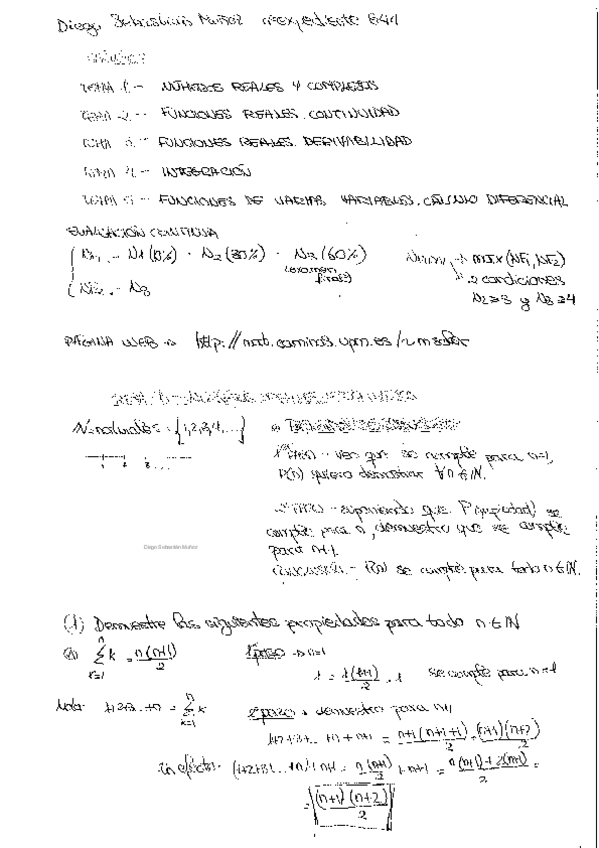 Diego Sebastián Muñoz nº expediente 641
TEMA 1.- NÚMEROS REALES Y COMPLEJOS
TEMA 2.- FUNCIONES REALES. CONTINUIDAD
TEMA 3.- FUNCIONES REALES. DERIVABILIDAD
TEMA 4.- INTEGRACIÓN
TEMA 5.- FUNCIONES DE VARIAS VARIABLES. CÁLCULO DIFERENCIAL
EVALUACIÓN CONTINUA
NF1 - N1 (10%) + N2 (30%) + N3 (60%)
(examen final)
NF2 - N3
→ max(NF1, NF2)
2 condiciones
N2 ≥ 3 y N3 ≥ 4
PÁGINA WEB →
N = naturales = {1,2,3,4,...}
1 2 3 ...
1º PASO - veo que se cumple para n=1,
P(n) quiero demostrar ∀ n ∈ N.
2º PASO - suponiendo que P(propiedad) se
cumple para n, demuestro que se cumple
para n+1.
CONCLUSIÓN - P(n) se cumple para todo n ∈ N.
Diego Sebastián Muñoz
(1) Demuestre las siguientes propiedades para todo n ∈ N
a) ∑_{k=1}^{n} k = n(n+1)/2
1º paso → n=1
1 = 1(1+1)/2 = 1 se cumple para n=1
Nota: 1+2+3...+n = ∑_{k=1}^{n} k
2º paso → demuestro para n+1
1+2+3+...+n+n+1 = n+1(n+1+1)/2 = (n+1)(n+2)/2
En efecto: (1+2+3+...+n)+n+1 = n(n+1)/2 + n+1 = n(n+1)+2(n+1)/2 =
= (n+1)(n+2)/2